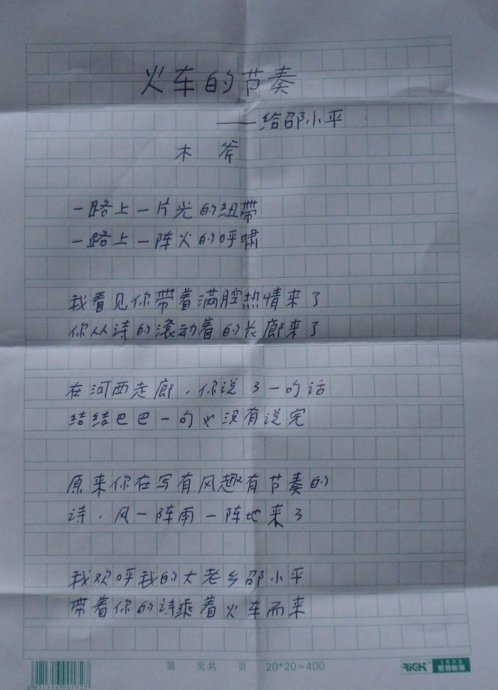 火车的节奏
——给邵小平
木斧
一路上一片光的纽带
一路上一阵火的呼啸
我看见你带着满腔热情来了
你从诗的滚动着的长廊来了
在河西走廊，你说了一句话
结结巴巴一句也没有说完
原来你在写有风趣有节奏的
诗，风一阵雨一阵地来了
我欢呼我的大老乡邵小平
带着你的诗乘着火车而来
第 页共 页 20*20=400
RiCH